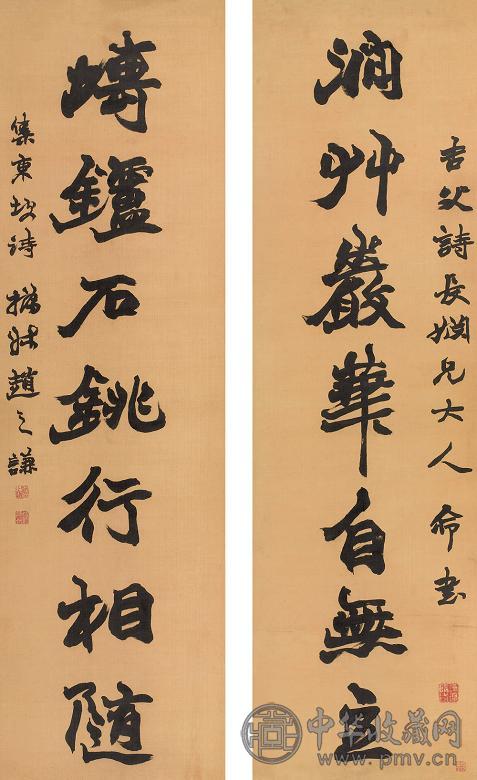 吉父詩長姻兄大人 命書
澗艸巖華自無主
塼鑪石銚行相隨
集東坡詩 撝叔趙之謙
中华收藏网
www.pmv.cn